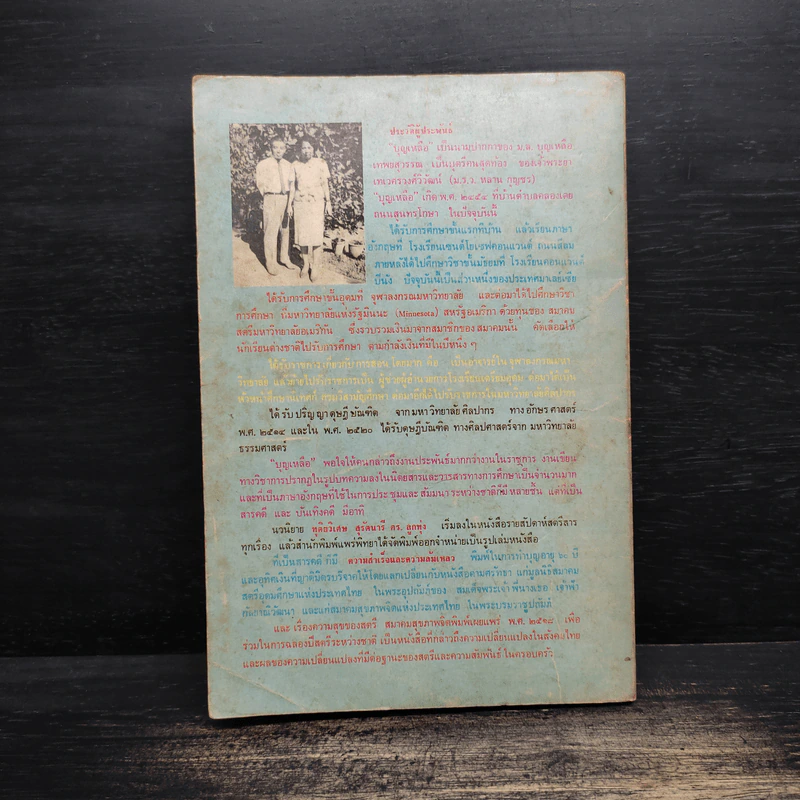 ประวัติผู้ประพันธ์
"บุญเหลือ" เป็นนามปากกาของ ม.ล. บุญเหลือ
เทพยสุวรรณ เป็นบุตรีคนสุดท้อง ของเจ้าพระยา
เทเวศรวงศ์วิวัฒน์ (ม.ร.ว. หลาน กุญชร)
"บุญเหลือ" เกิด พ.ศ. ๒๔๕๔ ที่บ้านตำบลคลองเตย
ถนนสุนทรโกษา ในปัจจุบันนี้
ได้รับการศึกษาชั้นแรกที่บ้าน แล้วเรียนภาษา
อังกฤษที่ โรงเรียนเซนต์โยเซฟคอนแวนต์ ถนนสีลม
ภายหลังได้ไปศึกษาวิชาชั้นมัธยมที่ โรงเรียนคอนแวนต์
ปีนัง ปัจจุบันนี้เป็นส่วนหนึ่งของประเทศมาเลเซีย
ได้รับการศึกษาขั้นอุดมที่ จุฬาลงกรณมหาวิทยาลัย และต่อมาได้ไปศึกษาวิชา
การศึกษา ที่มหาวิทยาลัยแห่งรัฐมินนะ (Minnesota) สหรัฐอเมริกา ด้วยทุนของ สมาคม
สตรีมหาวิทยาลัยอเมริกัน ซึ่งรวบรวมเงินมาจากสมาชิกของสมาคมนั้น คัดเลือกให้
นักเรียนต่างชาติไปรับการศึกษา ตามกำลังเงินที่มีในปีหนึ่ง ๆ
ได้รับราชการ เกี่ยวกับ การสอน โดยมาก คือ เป็นอาจารย์ใน จุฬาลงกรณมหา
วิทยาลัย แล้วย้ายไปรับราชการเป็น ผู้ช่วยผู้อำนวยการโรงเรียนเตรียมอุดม ต่อมาได้เป็น
หัวหน้าศึกษานิเทศก์ กรมวิสามัญศึกษา ต่อมาย้ายไปรับราชการในมหาวิทยาลัยศิลปากร
ได้ รับ ปริญ ญา ดุษฎี บัณฑิต จาก มหา วิทยาลัย ศิลปากร ทาง อักษร ศาสตร์
พ.ศ. ๒๕๑๔ และใน พ.ศ. ๒๕๒๐ ได้รับดุษฎีบัณฑิต ทางศิลปศาสตร์จาก มหาวิทยาลัย
ธรรมศาสตร์
"บุญเหลือ" พอใจให้คนกล่าวถึงงานประพันธ์มากกว่างานในราชการ งานเขียน
ทางวิชาการปรากฏในรูปบทความลงในนิตยสารและวารสารทางการศึกษาเป็นจำนวนมาก
และที่เป็นภาษาอังกฤษที่ใช้ในการประชุมและ สัมมนา ระหว่างชาติก็มี หลายชิ้น แต่ที่เป็น
สารคดี และ บันเทิงคดี มีอาทิ
นวนิยาย ทุติยวิเศษ สุรัตนารี ดร. ลูกทุ่ง เริ่มลงในหนังสือรายสัปดาห์สตรีสาร
ทุกเรื่อง แล้วสำนักพิมพ์แพร่พิทยาได้จัดพิมพ์ออกจำหน่ายเป็นรูปเล่มหนังสือ
ที่เป็นสารคดี ก็มี ความสำเร็จและความล้มเหลว พิมพ์ในการทำบุญอายุ ๖๐ ปี
และอุทิศเงินที่ญาติมิตรบริจาคให้โดยแลกเปลี่ยนกับหนังสือตามศรัทธา แก่มูลนิธิสมาคม
สตรีอุดมศึกษาแห่งประเทศไทย ในพระอุปถัมภ์ของ สมเด็จพระเจ้าพี่นางเธอ เจ้าฟ้า
กัลยาณิวัฒนา และแก่สมาคมสุขภาพจิตแห่งประเทศไทย ในพระบรมราชูปถัมภ์
และ เรื่องความสุขของสตรี สมาคมสุขภาพจิตพิมพ์เผยแพร่ พ.ศ. ๒๕๑๘ เพื่อ
ร่วมในการฉลองปีสตรีระหว่างชาติ เป็นหนังสือที่กล่าวถึงความเปลี่ยนแปลงในสังคมไทย
และผลของความเปลี่ยนแปลงที่มีต่อฐานะของสตรีและความสัมพันธ์ ในครอบครัว